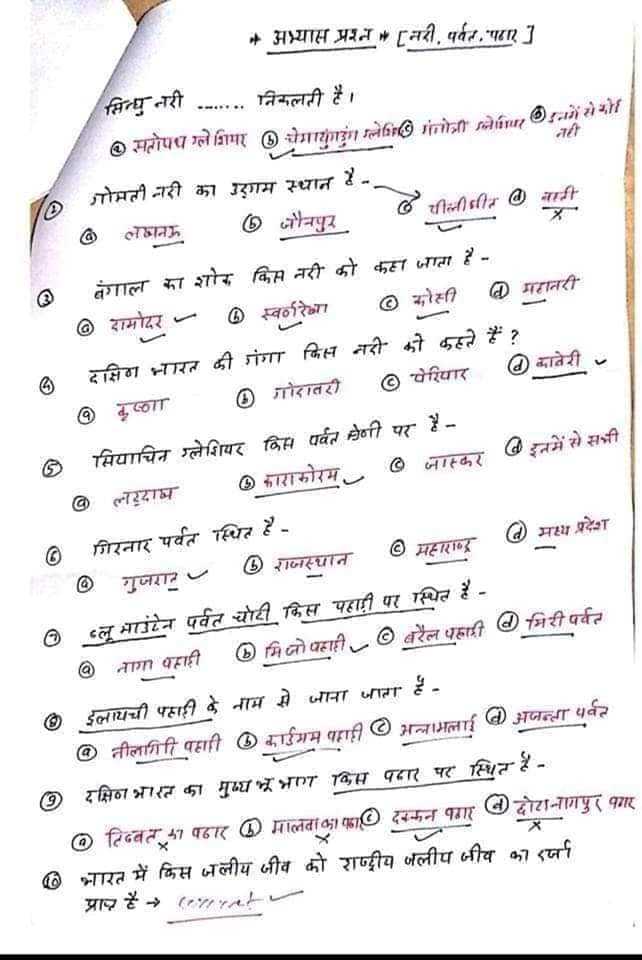 * अभ्यास प्रश्न * [नदी, पर्वत, पठार]
सिन्धु नदी ....... निकलती है।
ⓐ सतोपथ ग्लेशियर ⓑ चेमायुंगडुंग ग्लेशि ⓒ गंगोत्री ग्लेशियर ⓓ इनमें से कोई नहीं
② गोमती नदी का उद्गम स्थान है -
ⓐ लखनऊ ⓑ जौनपुर ⓒ पीलीभीत ⓓ
③ बंगाल का शोक किस नदी को कहा जाता है -
ⓐ दामोदर ⓑ स्वर्णरेखा ⓒ कोसी ⓓ महानदी
④ दक्षिण भारत की गंगा किस नदी को कहते हैं ?
ⓐ कृष्णा ⓑ गोदावरी ⓒ पेरियार ⓓ कावेरी
⑤ सियाचिन ग्लेशियर किस पर्वत श्रेणी पर है -
ⓐ लद्दाख ⓑ काराकोरम ⓒ जास्कर ⓓ इनमें से सभी
⑥ गिरनार पर्वत स्थित है -
ⓐ गुजरात ⓑ राजस्थान ⓒ महाराष्ट्र ⓓ मध्य प्रदेश
⑦ ब्लू माउंटेन पर्वत चोटी किस पहाड़ी पर स्थित है -
ⓐ नागा पहाड़ी ⓑ मिजो पहाड़ी ⓒ बरैल पहाड़ी ⓓ मिरी पर्वत
⑧ इलायची पहाड़ी के नाम से जाना जाता है -
ⓐ नीलागिरि पहाड़ी ⓑ कार्डमम पहाड़ी ⓒ अन्नामलाई ⓓ अजन्ता पर्वत
⑨ दक्षिण भारत का मुख्य भू भाग किस पठार पर स्थित है -
ⓐ तिब्बत का पठार ⓑ मालवा का पठार ⓒ दक्कन पठार ⓓ छोटा नागपुर पठार
⑩ भारत में किस जलीय जीव को राष्ट्रीय जलीय जीव का दर्जा
प्राप्त है →